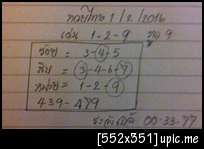 หวยไทย 1/2/2016
เด่น 1-2-9 ชุด 9
ร้อย = 3-4-5
สิบ = 3-4-6-9
หน่วย = 1-2-9
439-479
00-33-77
[552x351] upic.me